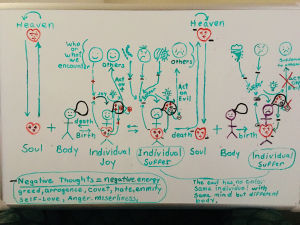 Heaven
Heaven
Who or
what we
encounter
others
others
Joy
Act on
Act on
Evil
death
Birth
death
birth
Soul + Body
Individual
Joy
Individual
Suffer
Soul
Body
Individual
Suffer
Negative Thoughts = negative energy
greed, arrogence, covet, hate, enmity
SELF-LOVE, Anger, miserliness,
The soul has no color
Same individual with
same mind but different
body.